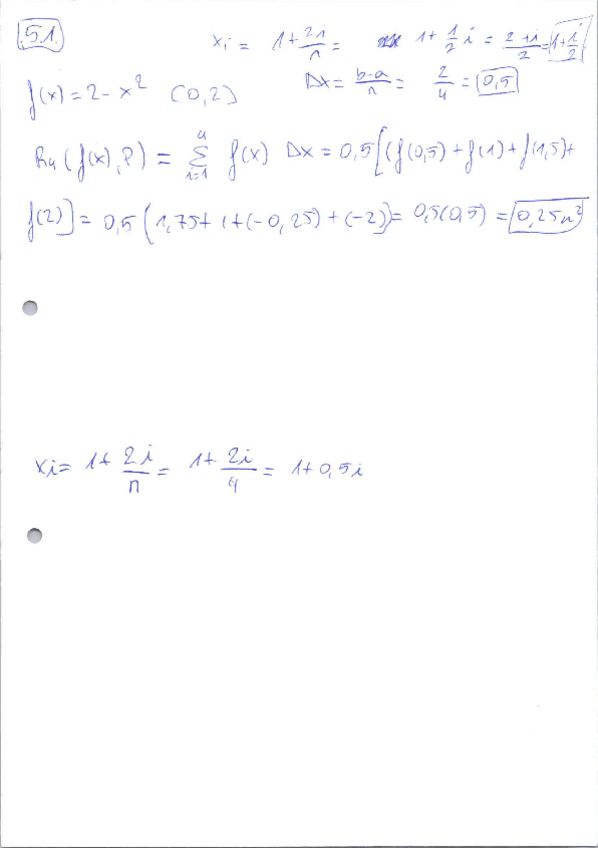 51.
xᵢ = 1 + 2i/n = 1 + 1/2 i = (2+i)/2 = 1 + i/2
f(x) = 2 - x² (0,2) Δx = (b-a)/n = 2/4 = 0,5
R₄(f(x), P) = Σ_{i=1}^{4} f(x) Δx = 0,5[(f(0,5) + f(1) + f(1,5) +
f(2)] = 0,5(1,75 + 1 + (-0,25) + (-2)) = 0,5(0,5) = 0,25u²
xᵢ = 1 + 2i/n = 1 + 2i/4 = 1 + 0,5i